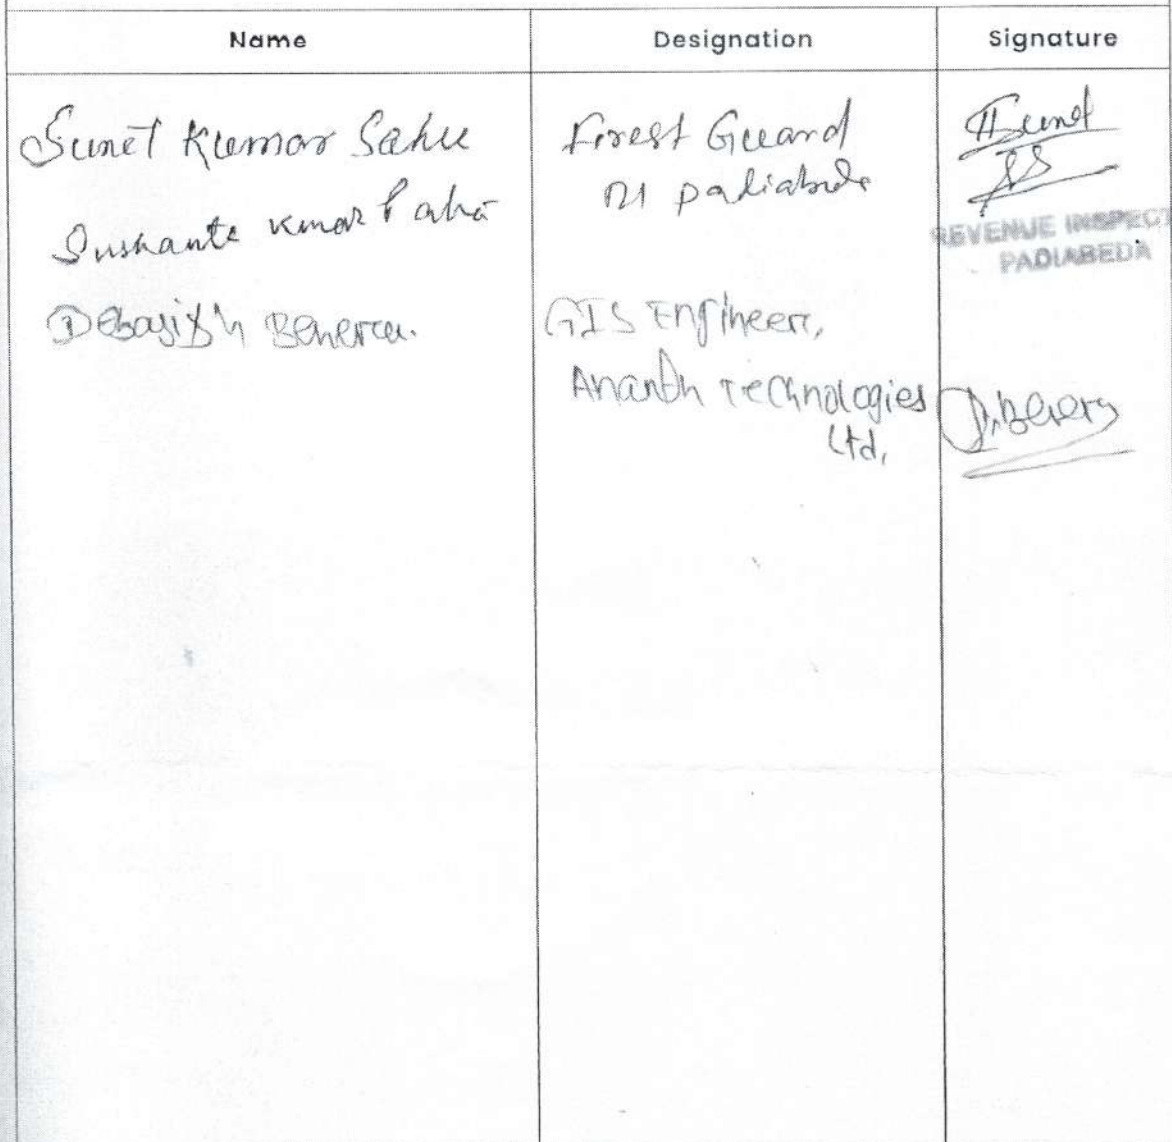 Name Designation Signature
Sunil Kumar Sahu Forest Guard Sunil
Sushanta Kumar RI Padiabeda
REVENUE INSPECT
PADIABEDA
Debasish Behera. GIS Engineer,
Ananth Technologies D. Behera
Ltd,